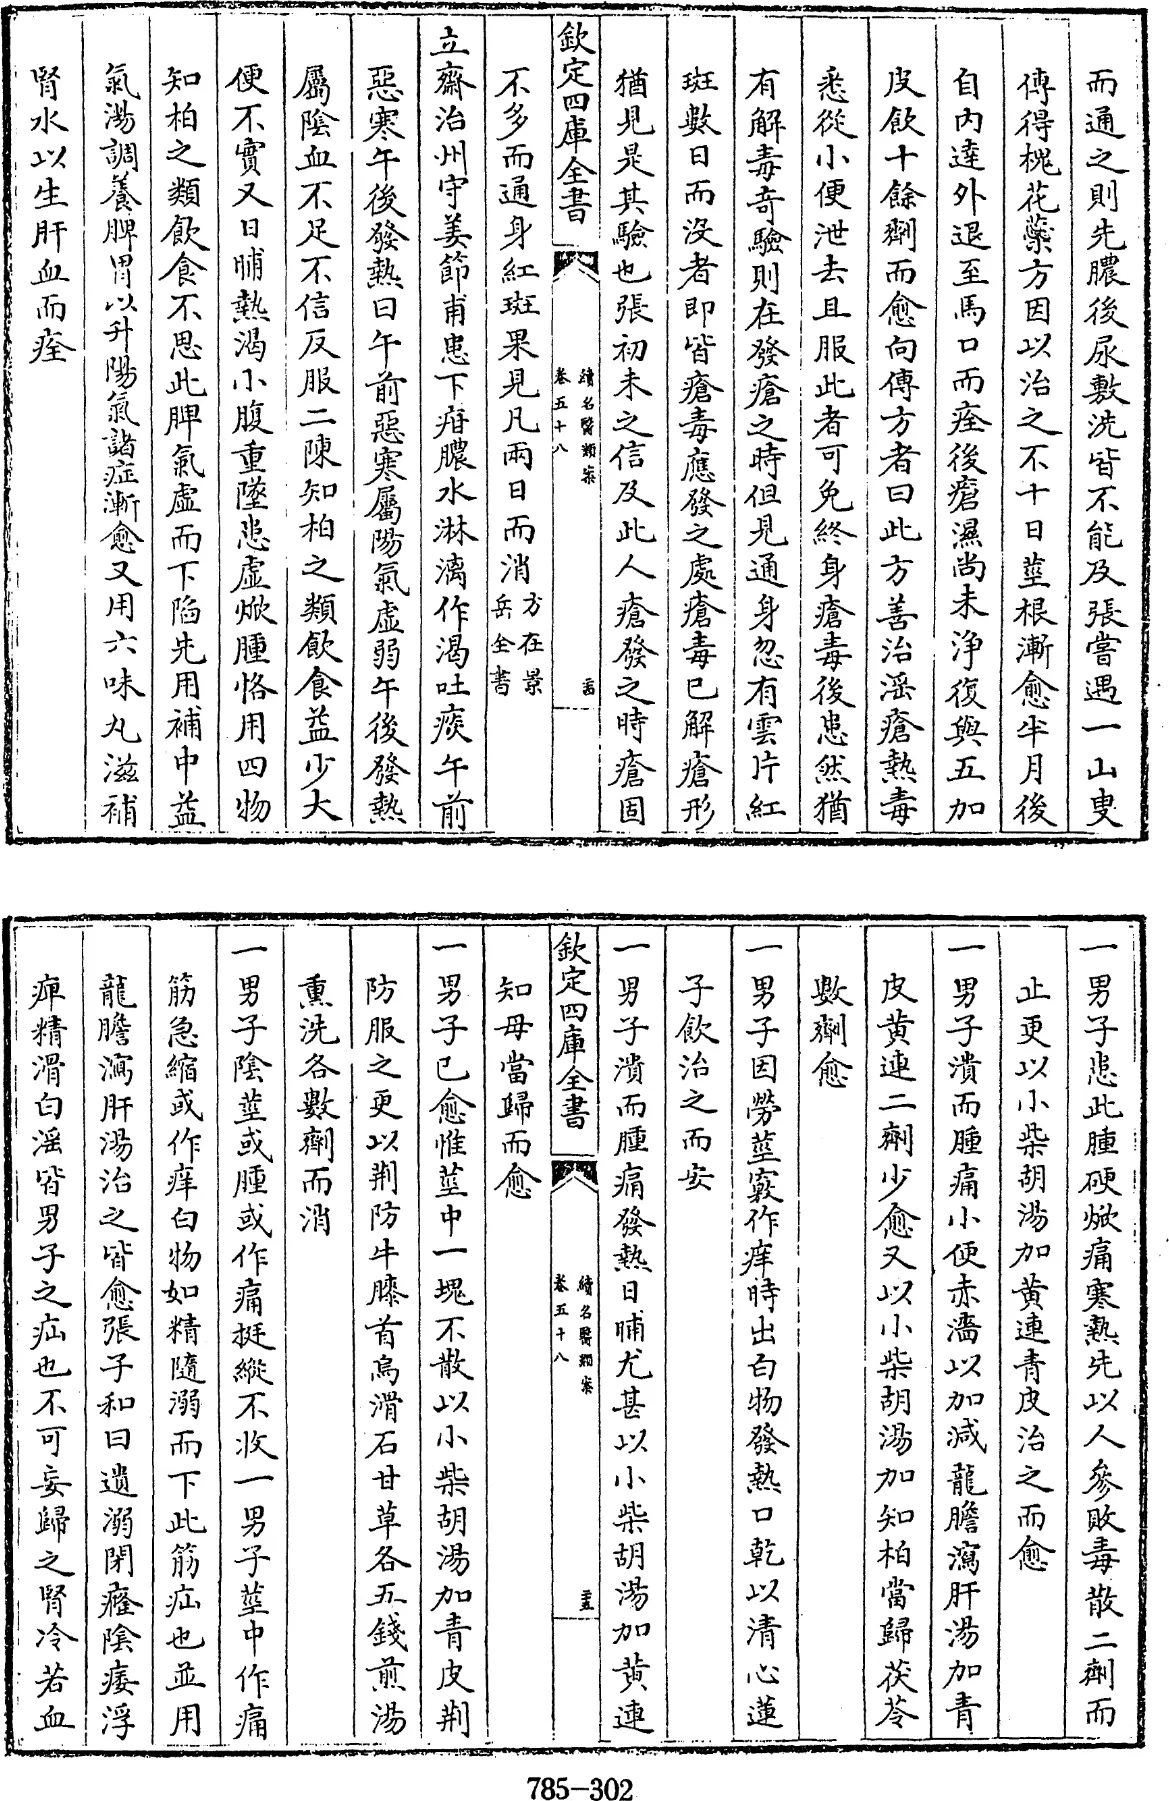 而通之則先膿後尿敷洗皆不能及張嘗遇一山叟
傳得槐花蘂方因以治之不十日莖根漸愈半月後
自內達外退至馬口而痊後瘡濕尚未淨復與五加
皮飲十餘劑而愈向傳方者曰此方善治淫瘡熱毒
悉從小便泄去且服此者可免終身瘡毒後患然猶
有解毒奇驗則在發瘡之時但見通身忽有雲片紅
斑數日而没者即皆瘡毒應發之處瘡毒已解瘡形
猶見是其驗也張初未之信及此人瘡發之時瘡固
欽定四庫全書
續名醫類案
卷五十八
不多而通身紅斑果見凡兩日而消方在景岳全書
立齋治州守姜節甫患下疳膿水淋漓作渴吐痰午前
惡寒午後發熱曰午前惡寒屬陽氣虛弱午後發熱
屬陰血不足不信反服二陳知柏之類飲食益少大
便不實又日晡熱渴小腹重墜患虛焮腫恪用四物
知柏之類飲食不思此脾氣虛而下陷先用補中益
氣湯調養脾胃以升陽氣諸症漸愈又用六味丸滋補
腎水以生肝血而痊
一男子患此腫硬焮痛寒熱先以人參敗毒散二劑而
止更以小柴胡湯加黄連青皮治之而愈
一男子潰而腫痛小便赤濇以加減龍膽瀉肝湯加青
皮黄連二劑少愈又以小柴胡湯加知柏當歸茯苓
數劑愈
一男子因勞莖竅作痒時出白物發熱口乾以清心蓮
子飲治之而安
一男子潰而腫痛發熱日晡尤甚以小柴胡湯加黄連
欽定四庫全書
續名醫類案
卷五十八
知母當歸而愈
一男子已愈惟莖中一塊不散以小柴胡湯加青皮荆
防服之更以荆防牛膝首烏滑石甘草各五錢煎湯
熏洗各數劑而消
一男子陰莖或腫或作痛挺縱不收一男子莖中作痛
筋急縮或作痒白物如精隨溺而下此筋疝也並用
龍膽瀉肝湯治之皆愈張子和曰遺溺閉癃陰痿浮
痺精滑白淫皆男子之疝也不可妄歸之腎冷若血
785-302